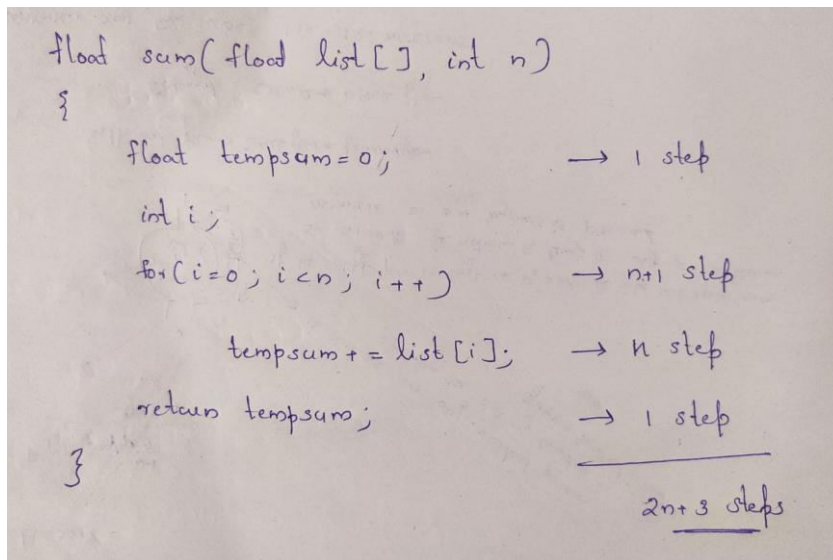 float sum( float list[], int n)
{
float tempsum = 0; → 1 step
int i;
for(i=0; i<n; i++) → n+1 step
tempsum += list[i]; → n step
return tempsum; → 1 step
}
2n+3 steps